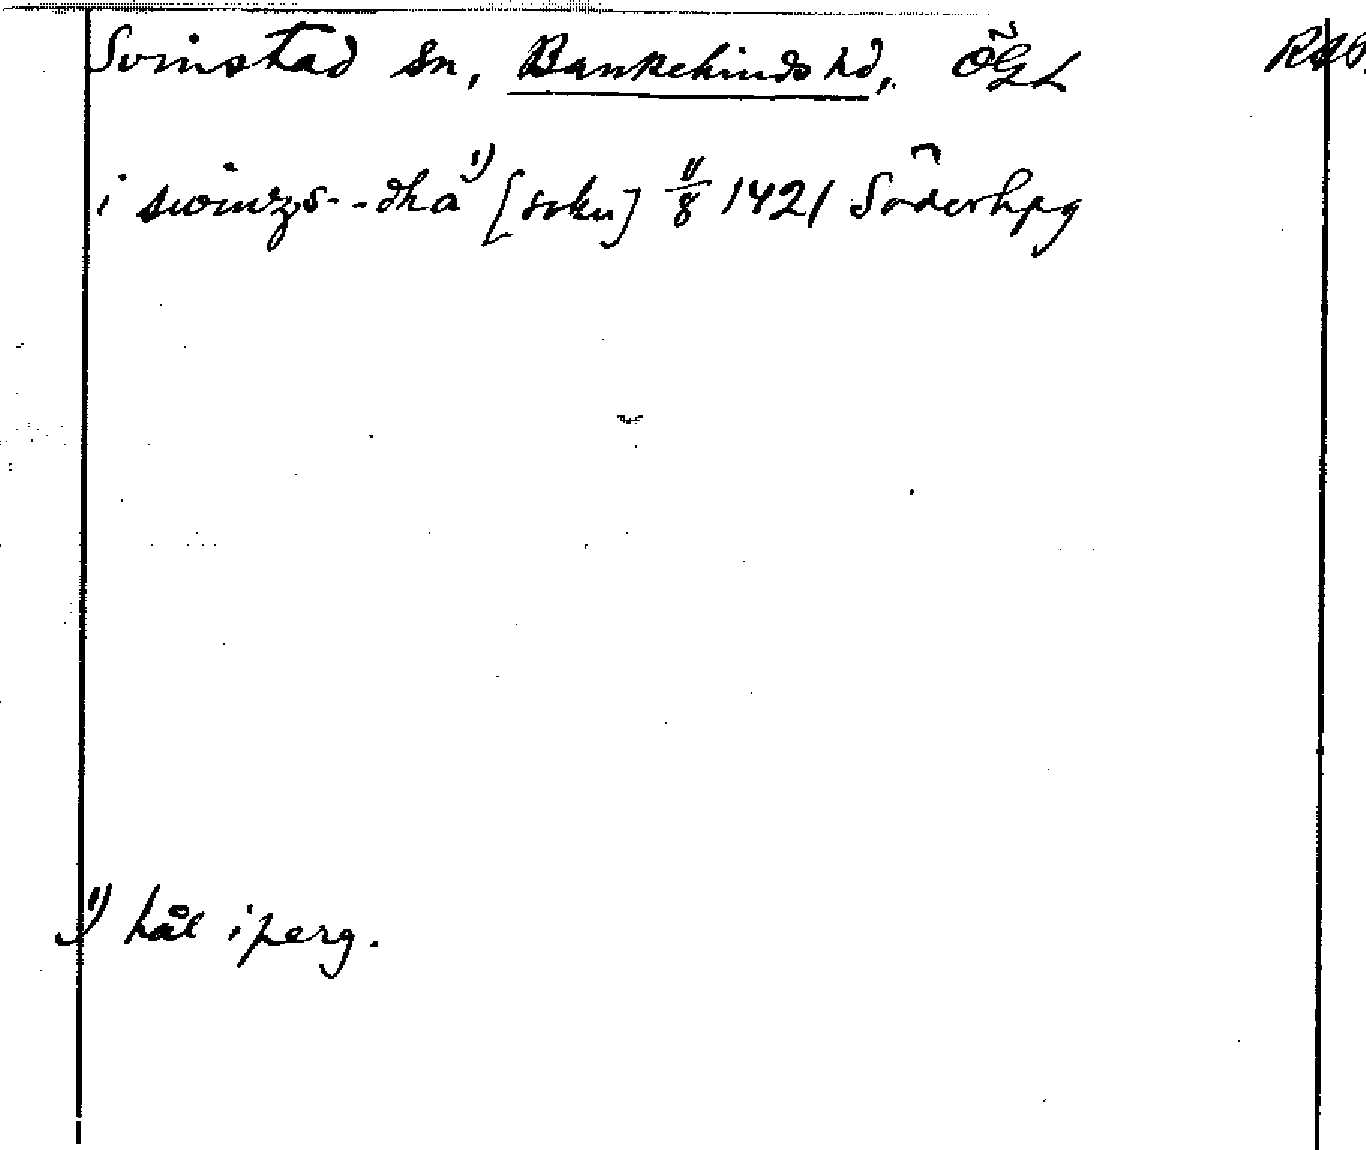 Svinstad sn, Bankekinds hd, ÖGL RAp.
i swinzs--dha 1) [sokn] 11/8 1421 Söderkpg
1) hål i perg.